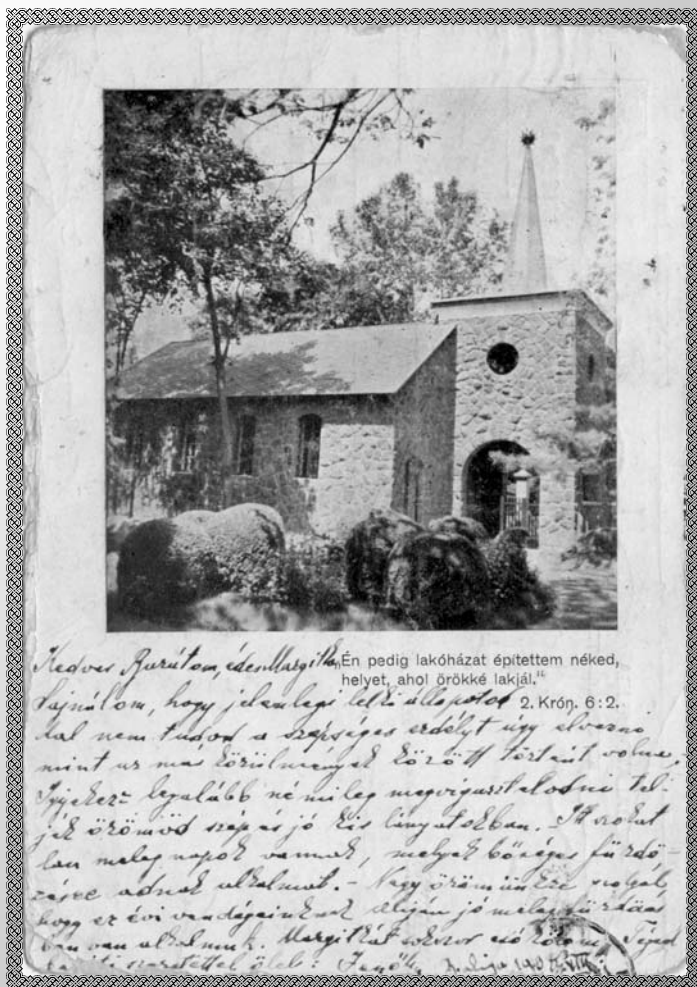 „Én pedig lakóházat építettem néked,
helyet, ahol örökké lakjál.“
2. Krón. 6:2.
Kedves Barátom, édes Margitka
Sajnálom, hogy jelenlegi lelki állapotod
dal nem tudod a szépséges erdélyt úgy élvezni
mint az más körülmények között történt volna.
Igyekezz legalább némileg megvigasztalódni tel-
ják örömöd szép és jó kis lányatokban. - Itt szokat
lan meleg napok vannak, melyek bőséges fürdő-
zésre adnak alkalmat. - Nagy örömünkre szolgál,
hogy ez évi vendégeinknek jó meleg
van alkalmuk. Margitkát sokszor csókolom, Téged
szeretettel ölel: Jenő